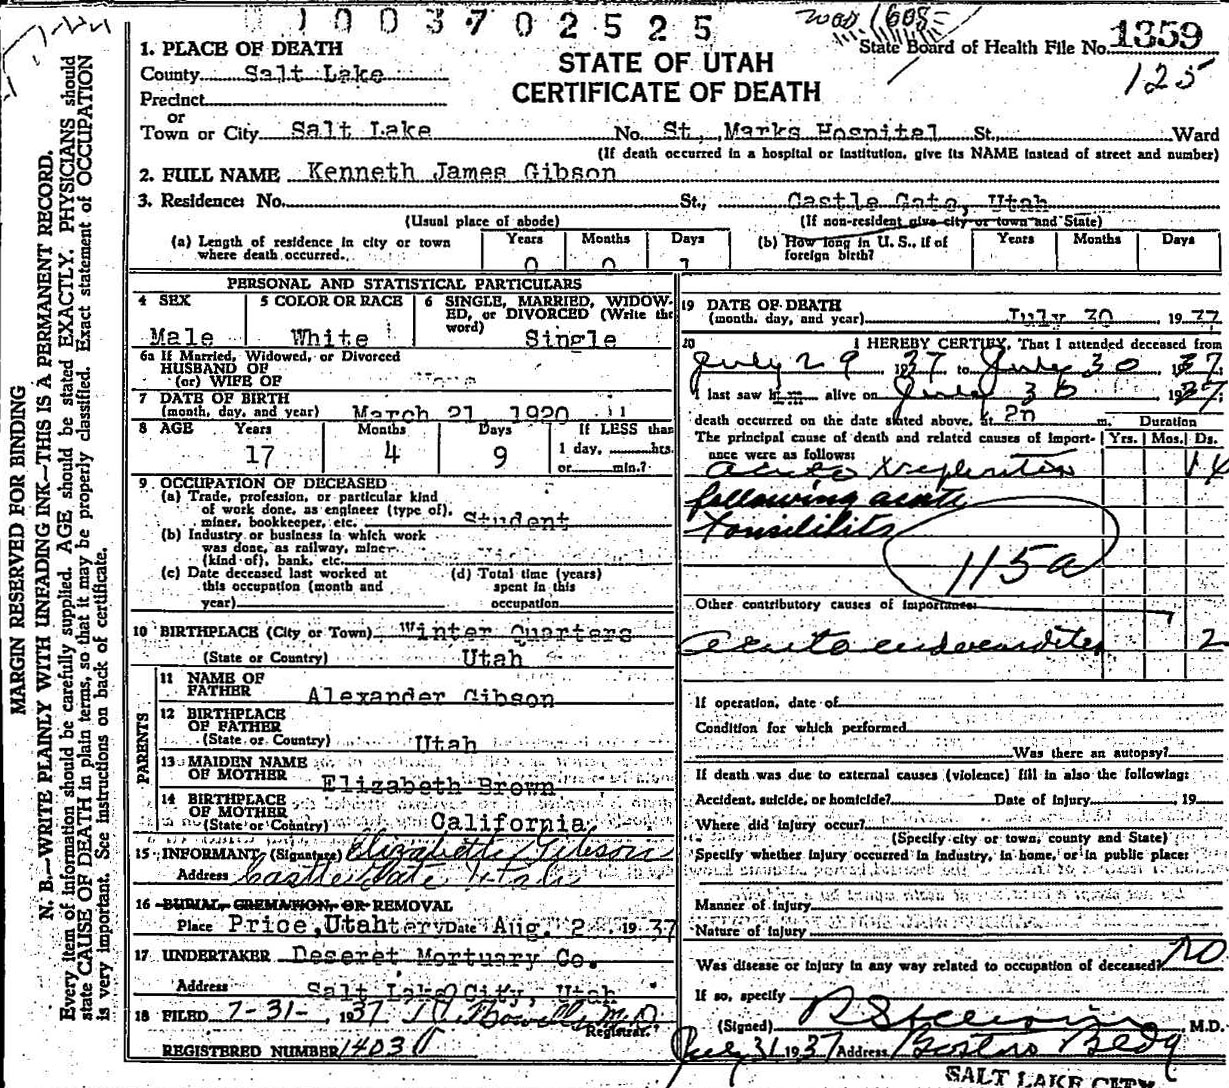 0 1 0 0 3 7 0 2 5 2 5
State Board of Health File No. 1359
125
STATE OF UTAH
CERTIFICATE OF DEATH
1. PLACE OF DEATH
County Salt Lake
Precinct
or
Town or City Salt Lake No. St. Marks Hospital St. Ward
(If death occurred in a hospital or institution, give its NAME instead of street and number)
2. FULL NAME Kenneth James Gibson
3. Residence: No. St., Castle Gate, Utah
(Usual place of abode) (If non-resident give city or town and State)
(a) Length of residence in city or town where death occurred. Years 0 Months 0 Days 1
(b) How long in U. S., if of foreign birth? Years Months Days
PERSONAL AND STATISTICAL PARTICULARS
4 SEX Male
5 COLOR OR RACE White
6 SINGLE, MARRIED, WIDOWED, or DIVORCED (Write the word) Single
6a If Married, Widowed, or Divorced
HUSBAND OF
(or) WIFE OF None
7 DATE OF BIRTH
(month, day, and year) March 21 1920
8 AGE Years 17 Months 4 Days 9 If LESS than
1 day, hrs.
or min.?
9 OCCUPATION OF DECEASED
(a) Trade, profession, or particular kind
of work done, as engineer (type of),
miner, bookkeeper, etc. Student
(b) Industry or business in which work
was done, as railway, miner
(kind of), bank, etc.
(c) Date deceased last worked at
this occupation (month and
year)
(d) Total time (years)
spent in this
occupation
10 BIRTHPLACE (City or Town) Winter Quarters
(State or Country) Utah
PARENTS
11 NAME OF
FATHER Alexander Gibson
12 BIRTHPLACE
OF FATHER
(State or Country) Utah
13 MAIDEN NAME
OF MOTHER Elizabeth Brown
14 BIRTHPLACE
OF MOTHER
(State or Country) California
15 INFORMANT (Signature) Elizabeth Gibson
Address Castle Gate Utah
16 BURIAL, CREMATION, OR REMOVAL
Place Price, Utah Date Aug. 2 1937
17 UNDERTAKER Deseret Mortuary Co.
Address Salt Lake City, Utah
18 FILED 7-31-, 1937 M.D.
Registrar.
REGISTERED NUMBER 1403
19 DATE OF DEATH
(month, day, and year) July 30 1937
20 I HEREBY CERTIFY, That I attended deceased from
July 29 1937 to July 30 1937
I last saw him alive on July 30 1937
death occurred on the date stated above, at m.
Duration
The principal cause of death and related causes of importance were as follows: Yrs. Mos. Ds.
acute 14
following acute
Tonsilitis
115a
Other contributory causes of importance:
acute endocarditis 2
If operation, date of
Condition for which performed
Was there an autopsy?
If death was due to external causes (violence) fill in also the following:
Accident, suicide, or homicide? Date of Injury 19
Where did injury occur?
(Specify city or town, county and State)
Specify whether injury occurred in industry, in home, or in public place:
Manner of Injury
Nature of Injury
Was disease or injury in any way related to occupation of deceased? no
If so, specify
(Signed) M.D.
July 31 1937 Address Boston Bldg
SALT LAKE CITY
MARGIN RESERVED FOR BINDING
N. B.—WRITE PLAINLY WITH UNFADING INK—THIS IS A PERMANENT RECORD.
Every item of information should be carefully supplied. AGE should be stated EXACTLY. PHYSICIANS should
state CAUSE OF DEATH in plain terms, so that it may be properly classified. Exact statement of OCCUPATION
is very important. See instructions on back of certificate.